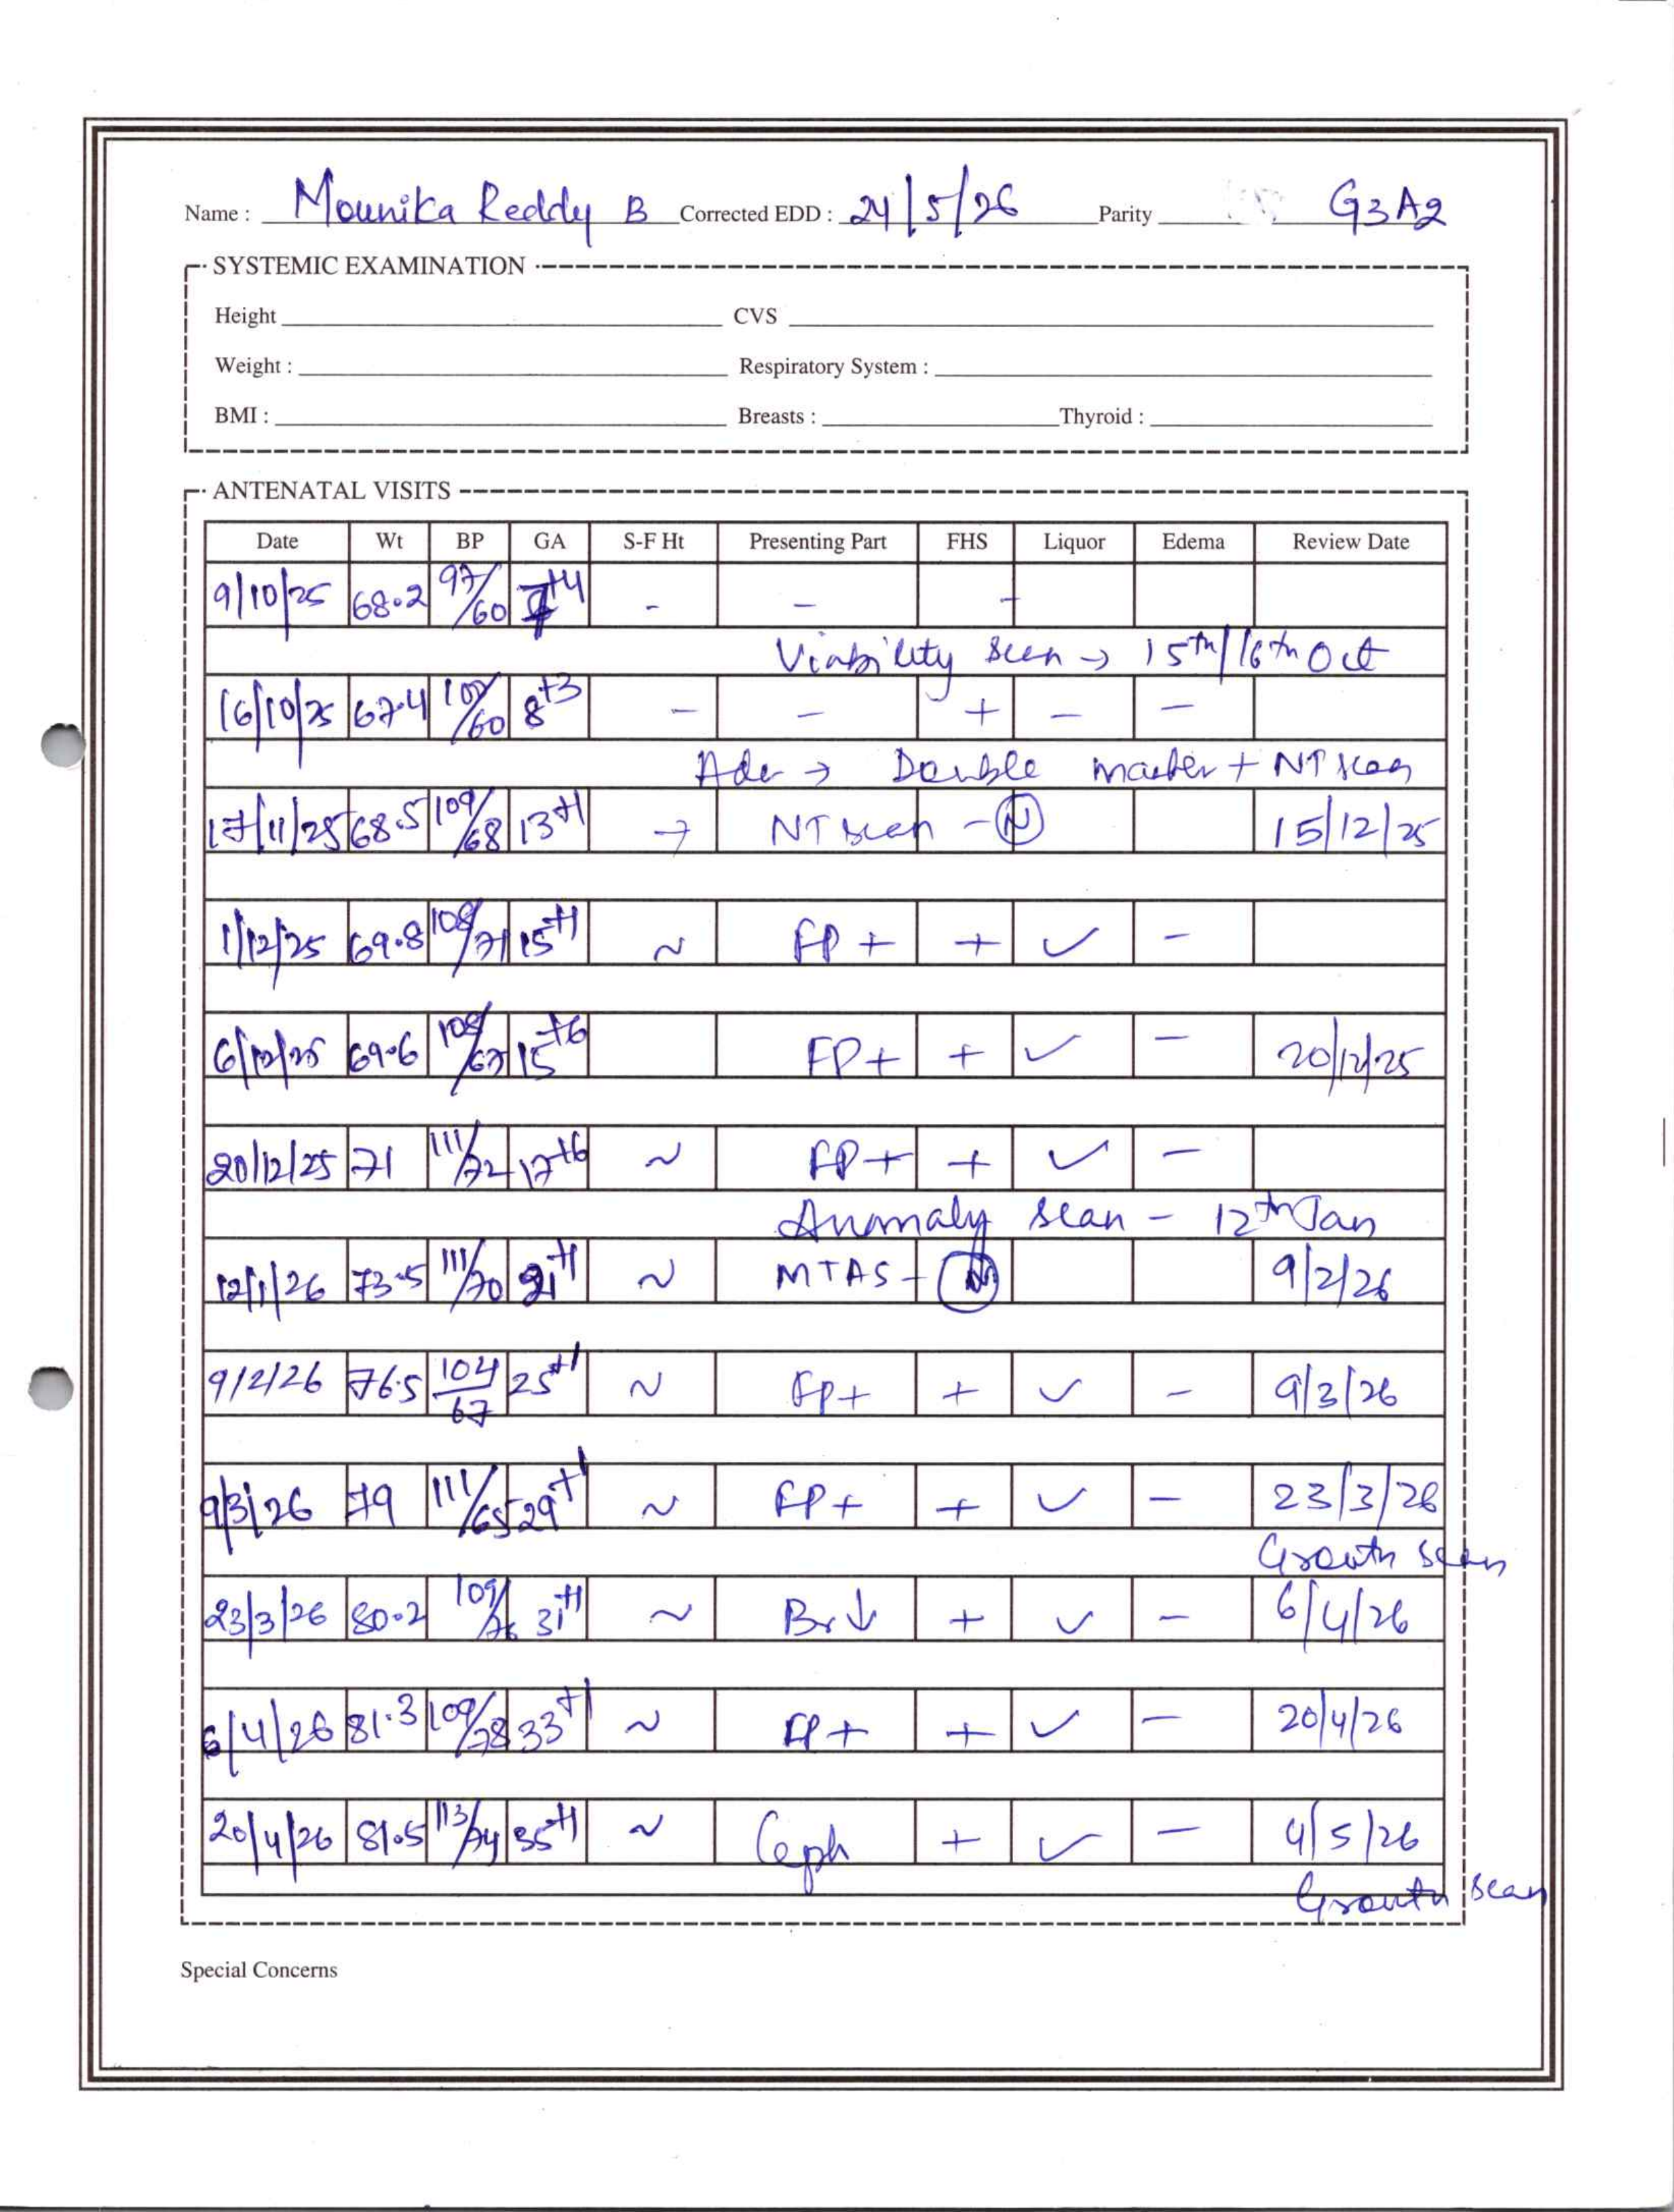 Name : Mounika Reddy B Corrected EDD : 24/5/26 Parity G3A2
SYSTEMIC EXAMINATION
Height CVS
Weight : Respiratory System :
BMI : Breasts : Thyroid :
ANTENATAL VISITS
Date Wt BP GA S-F Ht Presenting Part FHS Liquor Edema Review Date
9/10/25 68.2 97/60 7+4 - - -
Viability Scan → 15th/16th Oct
16/10/25 67.4 102/60 8+3 - - + - -
Adv → Double marker + NT scan
17/11/25 68.5 109/68 13+1 → NT scan - N 15/12/25
1/12/25 69.8 108/71 15+1 ~ FP + + ✓ -
6/12/25 69.6 108/67 15+6 FP + + ✓ - 20/12/25
20/12/25 71 111/72 17+6 ~ FP + + ✓ -
Anomaly scan - 12th Jan
12/1/26 73.5 111/70 21+1 ~ MTAS - N 9/2/26
9/2/26 76.5 104/67 25+1 ~ FP + + ✓ - 9/3/26
9/3/26 79 111/65 29+1 ~ FP + + ✓ - 23/3/26
Growth scan
23/3/26 80.2 109/76 31+1 ~ Br ↓ + ✓ - 6/4/26
6/4/26 81.3 109/78 33+1 ~ FP + + ✓ - 20/4/26
20/4/26 81.5 113/74 35+1 ~ Ceph + ✓ - 4/5/26
Growth scan
Special Concerns